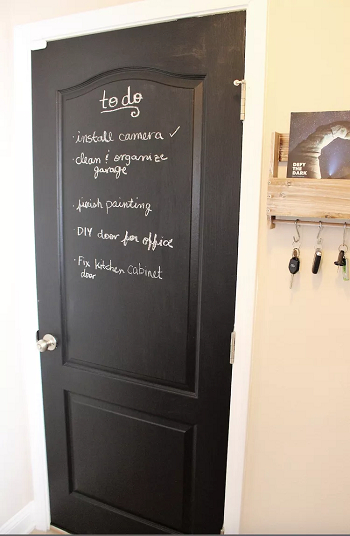 to do
· install camera ✓
· clean & organize
garage
· finish painting
· DIY door for office
· Fix kitchen cabinet
door
DEFY
THE
DARK